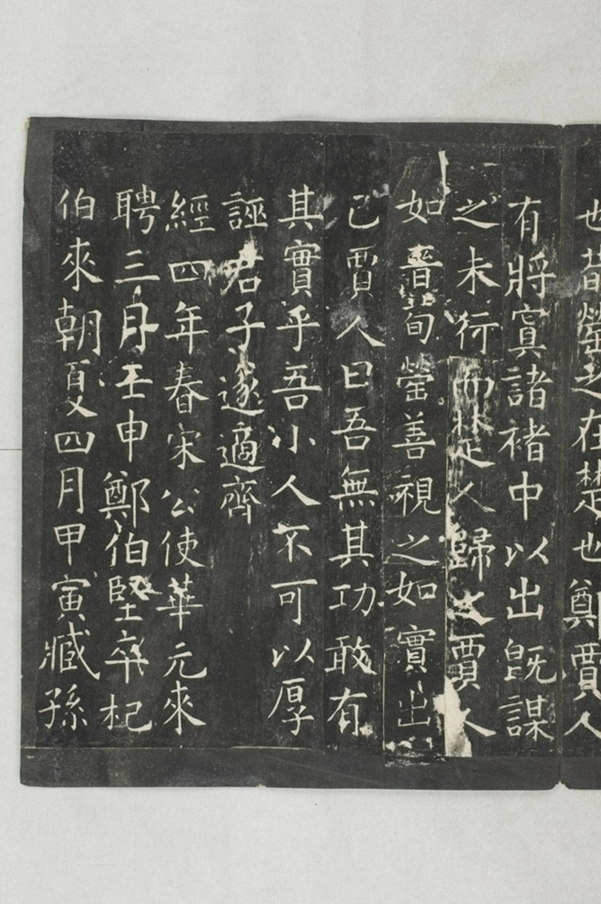 也昔罃之在楚也鄭賈人
有將寘諸褚中以出既謀
之未行而楚人歸之賈人
如晉荀罃善視之如實出
己賈人曰吾無其功敢有
其實乎吾小人不可以厚
誣君子遂適齊
經四年春宋公使華元來
聘三月壬申鄭伯堅卒杞
伯來朝夏四月甲寅臧孫